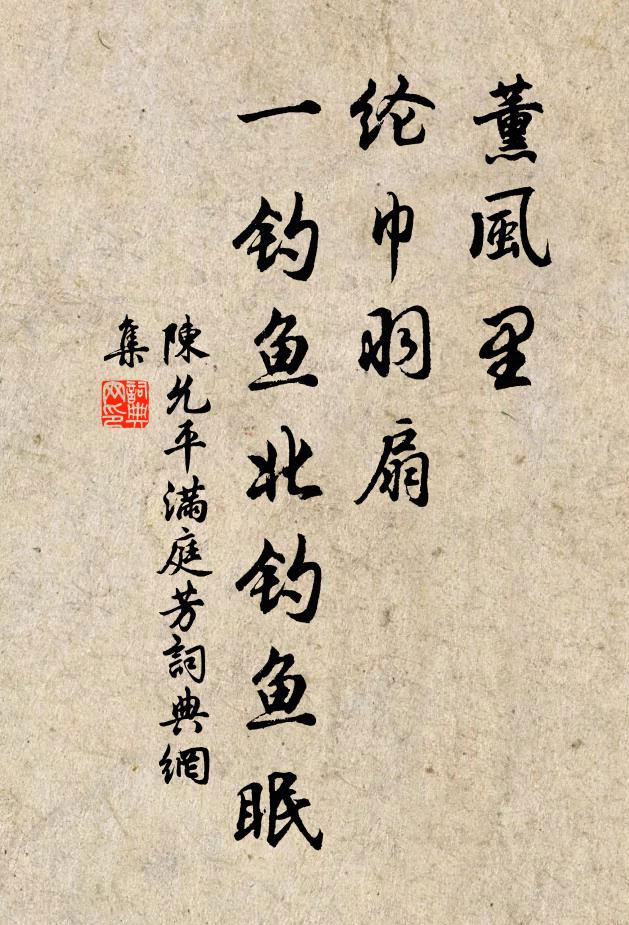 薰風里
纶巾羽扇
一钓鱼北钓鱼眠
陳允平滿庭芳詞典網
集
詞典
网印